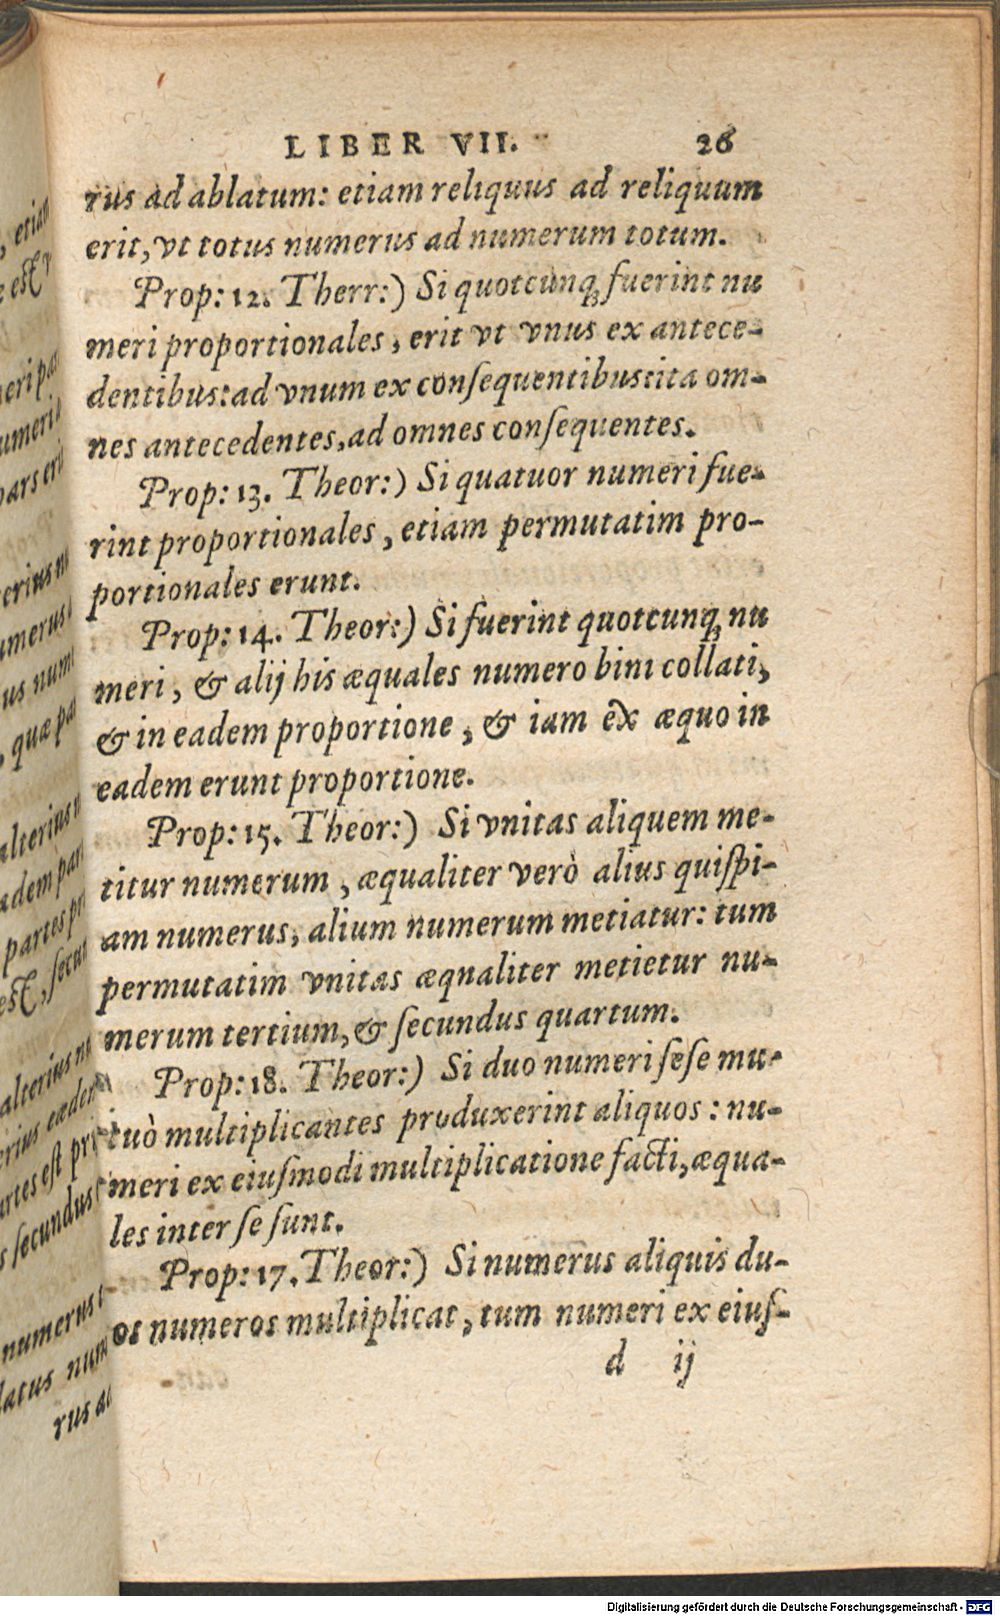 LIBER VII. 26
rus ad ablatum: etiam reliquus ad reliquum
erit, vt totus numerus ad numerum totum.
Prop: 12. Therr:) Si quotcunq; fuerint nu
meri proportionales, erit vt vnus ex antece-
dentibus: ad vnum ex conſequentibus: ita om-
nes antecedentes, ad omnes conſequentes.
Prop: 13. Theor:) Si quatuor numeri fue-
rint proportionales, etiam permutatim pro-
portionales erunt.
Prop: 14. Theor:) Si fuerint quotcunq; nu
meri, & alij his æquales numero bini collati,
& in eadem proportione, & iam ex æquo in
eadem erunt proportione.
Prop: 15. Theor:) Si vnitas aliquem me-
titur numerum, æqualiter verò alius quiſpi-
am numerus, alium numerum metiatur: tum
permutatim vnitas æqnaliter metietur nu-
merum tertium, & ſecundus quartum.
Prop: 18. Theor:) Si duo numeri ſeſe mu-
tuò multiplicantes produxerint aliquos: nu-
meri ex eiuſmodi multiplicatione facti, æqua-
les inter ſe ſunt.
Prop: 17. Theor:) Si numerus aliquis du-
os numeros multiplicat, tum numeri ex eiuſ-
d ij
Digitalisierung gefördert durch die Deutsche Forschungsgemeinschaft - DFG